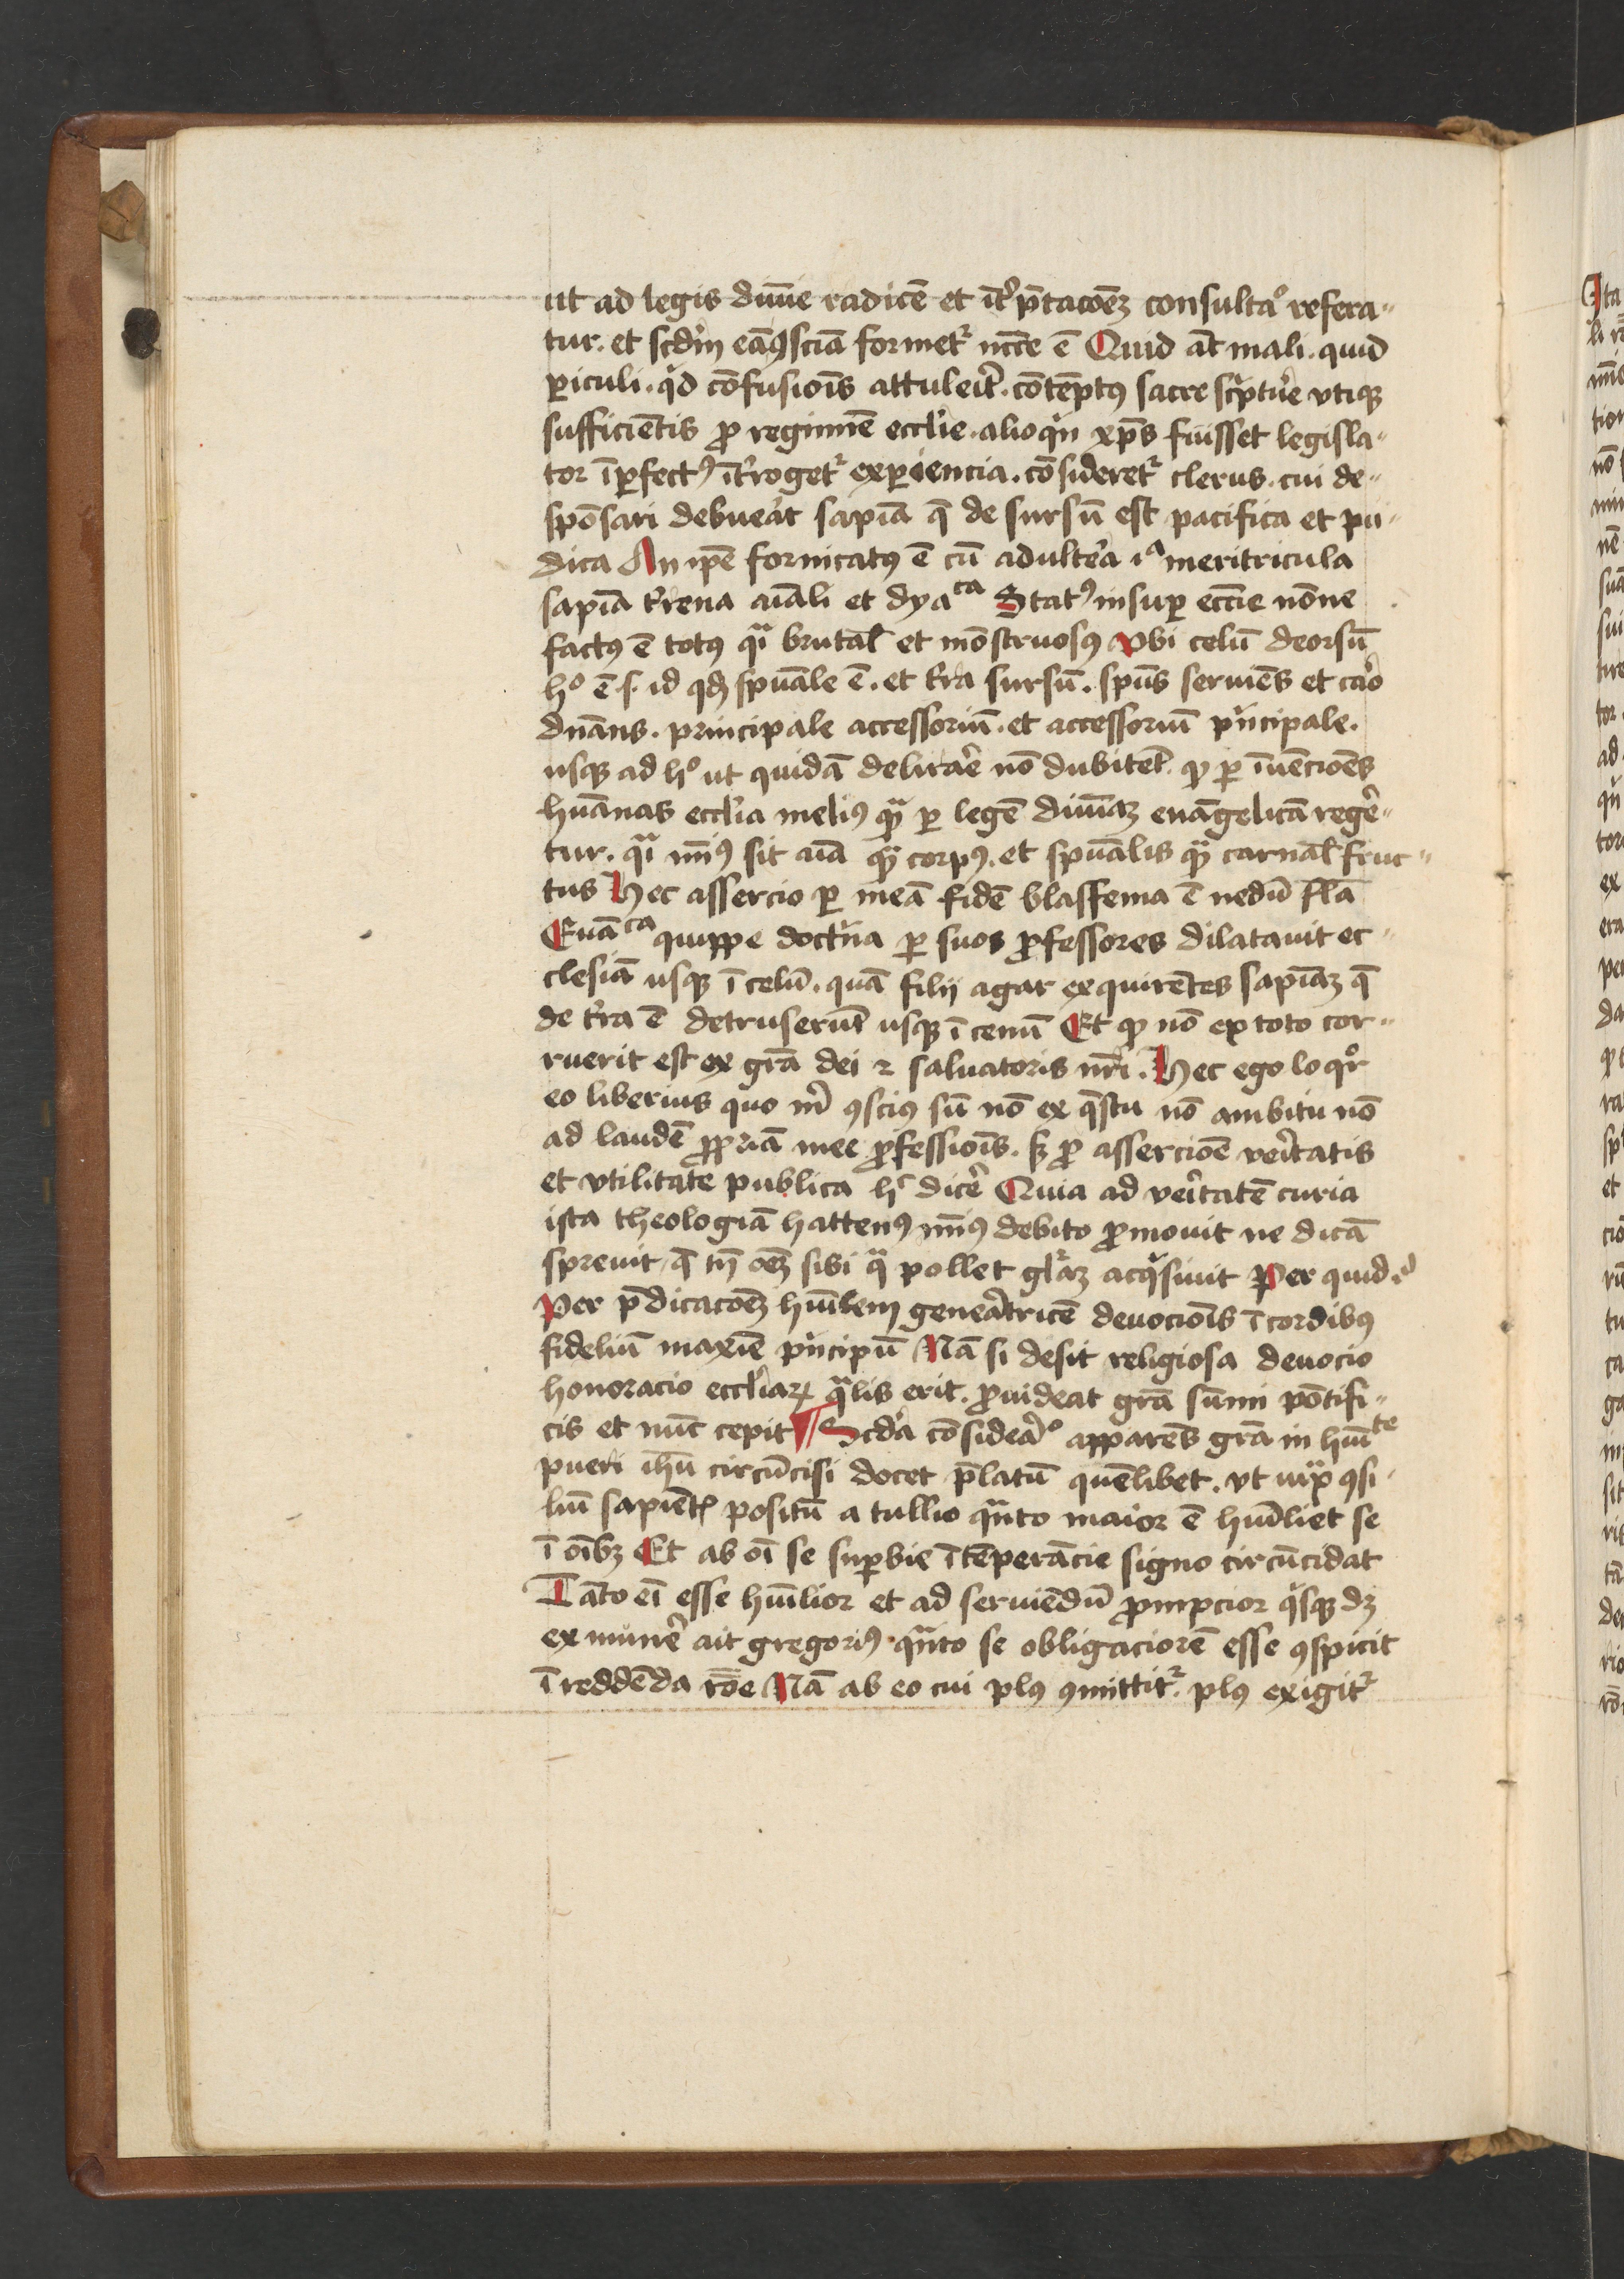 ut ad legis diuīe radicē et ītꝑp̄tacōeꝫ consultaͦ refera⸗
tur. et scd̓m eāꝯsciā formetᷣ nc̄ce ē Quid at̄ mali. quid
ꝑiculi. qͥd cōfusiōis attuleīt. cōtēptꝰ sacre sc̓ptuͬe vtiqꝫ
sufficiētis ꝓ regimīe eccl̓ie. alioqͥn xp̄s fuisset legisla⸗
tor īꝑfectꝰ īt̓rogetᷣ exꝑiencia. cōsideretᷣ clerus. cui de⸗
spōsari debueᷓt sapīa q̄ de sursū est pacifica et pu⸗
dica An ip̄e fornicatꝰ ē cū adulteᷓ ıᷓ meritricula
sapīa t̓rena aīali et dyaᶜᵃ Statꝰ insuꝑ ecc̄ie nōne
factꝰ ē totꝰ qᷓi brutał et mōstruosꝰ Vbi celū deorsū
hͦ ē .s. id qď sp̄uāle ē. et t̓ra sursū. sp̄us seruiēs et caͬo
dn̄ans. principale accessoriū. et accessoriū pͥncipale.
usqꝫ ad hͦ ut quidā delirare nō dubitēt. ꝙ ꝑ īuēciōes
hūanas eccl̓ia meliꝰ qᷓ ꝑ legē diuīaꝫ euāgelicā regeᷣ⸗
tur. qᷓi mīꝰ sit aīa qᷓ corpꝰ. et sp̄uālis qᷓ carnał fruc⸗
tus Hec assercio ꝑ meā fidē blasfema ē nedū fl̄a
Euāᶜᵃ quippe doctͥna ꝑ suos ꝓfessores dilatauit ec⸗
clesiā usqꝫ ī celū. quā filij agar exquirētes sapīaꝫ q̄
de t̓ra ē detruserūt usqꝫ ī cenū Et ꝙ nō ex toto cor⸗
ruerit est ex grā dei ⁊ saluatoris nr̄i. Hec ego loqͦr
eo liberius quo m̓ ꝯsciꝰ sū nō ex q̄stu nō ambitu nō
ad laudē ꝓpͥam mee ꝓfessiōis. sꝫ ꝓ assercōe veīt̓atis
et vtilitate publica hͨ dice᷑ Quia ad veīt̓atē curia
ista theologiā hattenꝰ mīꝰ debito ꝓmouit ne dicā
spreuit. q̄ tn̄ oēꝫ sibi qᷓ pollet gl̓aꝫ acqͥsiuit Per quid ⁊ͥ
Per p̄dicacōeꝫ hūilem geneᷓtricē deuociōis ī cordibꝰ
fideliū maxīe pͥncipū Nā si desit religiosa deuocio
honoracio eccl̓iaꝝ qᷓlis erit. ꝓuideat grā sūmi pōtifi⸗
cis et nūc cepit ¶ Scd̓a cōsideᷓͦ apparēs grā in hūiᵗᵉ
pueri ih̄u circūcisi docet p̄latū quēlibet. vt iuxᷓ ꝯsi⸗
liū sapiēt̄ positū a tullio qᷓnto maior ē hūiliet se
ī oībꝫ Et ab oī se suꝑbie ītēperācie signo circūcidat
Tāto eī esse hūilior et ad seruiēdū ꝓmpcior qͥsqꝫ dꝫ
ex mune᷑ ait gregoriꝰ qᷓnto se obligaciorē esse ꝯspicit
ī reddēda rōe Nā ab eo cui plꝰ ꝯmittitᷣ. plꝰ exigitᷣ